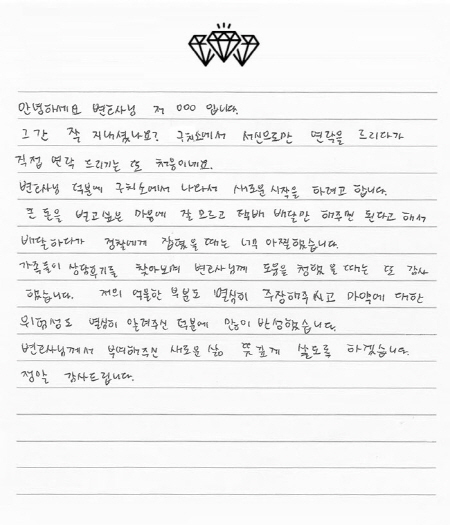 안녕하세요 변호사님 저 000 입니다.
그간 잘 지내셨나요? 구치소에서 서신으로만 연락을 드리다가
직접 연락 드리기는 또 처음이네요.
변호사님 덕분에 구치소에서 나와서 새로운 시작을 하려고 합니다.
큰 돈을 벌고싶은 마음에 잘 모르고 택배 배달만 해주면 된다고 해서
배달하다가 경찰에게 잡혔을 때는 너무 아찔했습니다.
가족들이 상담후기를 찾아보며 변호사님께 도움을 청했을 때는 또 감사
했습니다. 저의 억울한 부분도 열심히 주장해주시고 마약에 대한
위험성도 열심히 알려주신 덕분에 많이 반성했습니다.
변호사님께서 부여해주신 새로운 삶 뜻깊게 살도록 하겠습니다.
정말 감사드립니다.